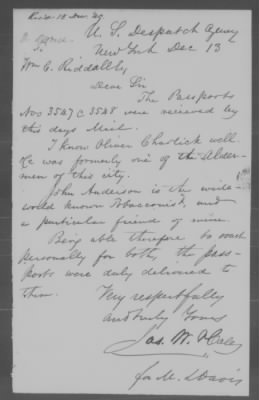 Recd. 15 Dec. '69
U. S. Despatch Agency
New York Dec 13
Wm C. Riddall Esq
Dear Sir
The Passports
Nos 3547 & 3548 were received by
this days Mail.
I know Oliver Charlick well.
He was formerly one of the Alder-
men of this city.
John Anderson is the wide-
world known Tobacconist, and
a particular friend of mine.
Being able therefore to vouch
personally for both, the pass-
ports were duly delivered to
them.
Very respectfully
and truly Yours
Jas. W.
for M.